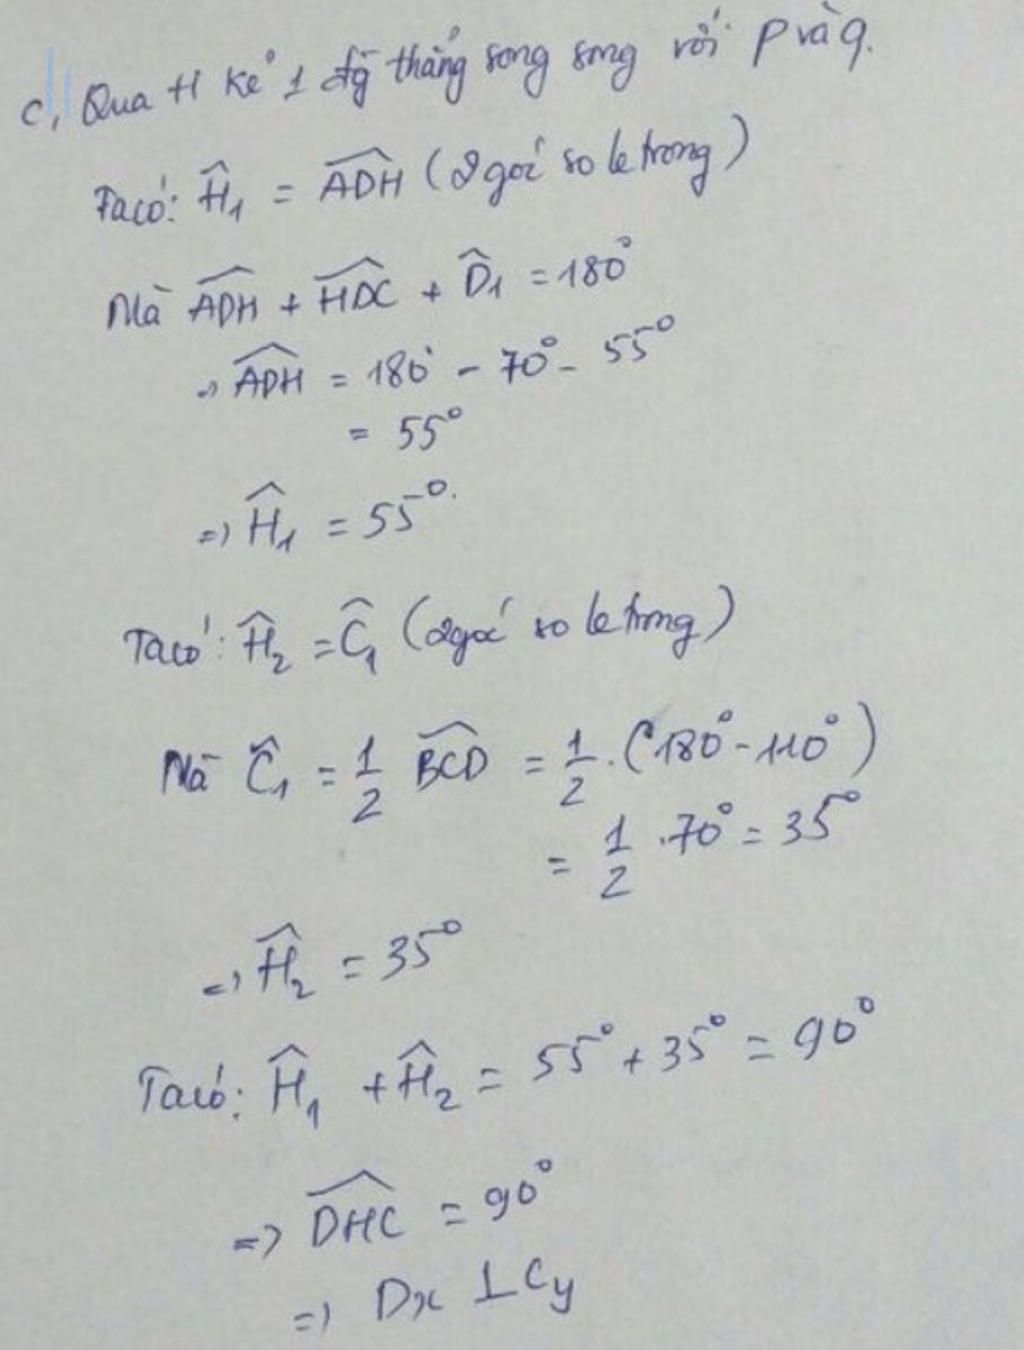 c, Qua H kẻ 1 đg thẳng song song với p và q.
Ta có: Ĥ₁ = \widehat{ADH} (2 góc so le trong)
Mà \widehat{ADH} + \widehat{HDC} + D̂₁ = 180°
=> \widehat{ADH} = 180° - 70° - 55°
= 55°
=> Ĥ₁ = 55°.
Ta có: Ĥ₂ = Ĉ₁ (2 góc so le trong)
Mà Ĉ₁ = 1/2 \widehat{BCD} = 1/2 . (180° - 110°)
= 1/2 . 70° = 35°
=> Ĥ₂ = 35°
Ta có: Ĥ₁ + Ĥ₂ = 55° + 35° = 90°
=> \widehat{DHC} = 90°
=> Dx ⊥ Cy